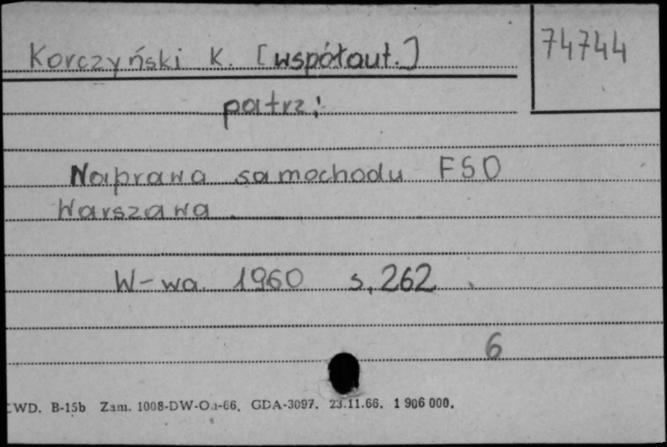 Korczyński K. [współaut.]
74744
patrz:
Naprawa samochodu FSO
Warszawa.
W-wa. 1960 s. 262.
6
CWD. B-15b Zam. 1008-DW-On-66. GDA-3097. 23.11.66. 1 906 000.